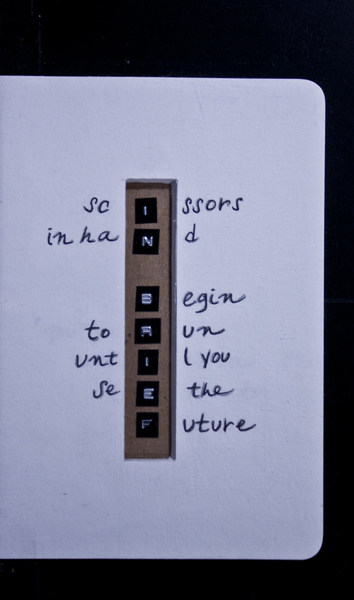 scIssors
in haNd
Begin
to Run
untIl you
seE the
Future